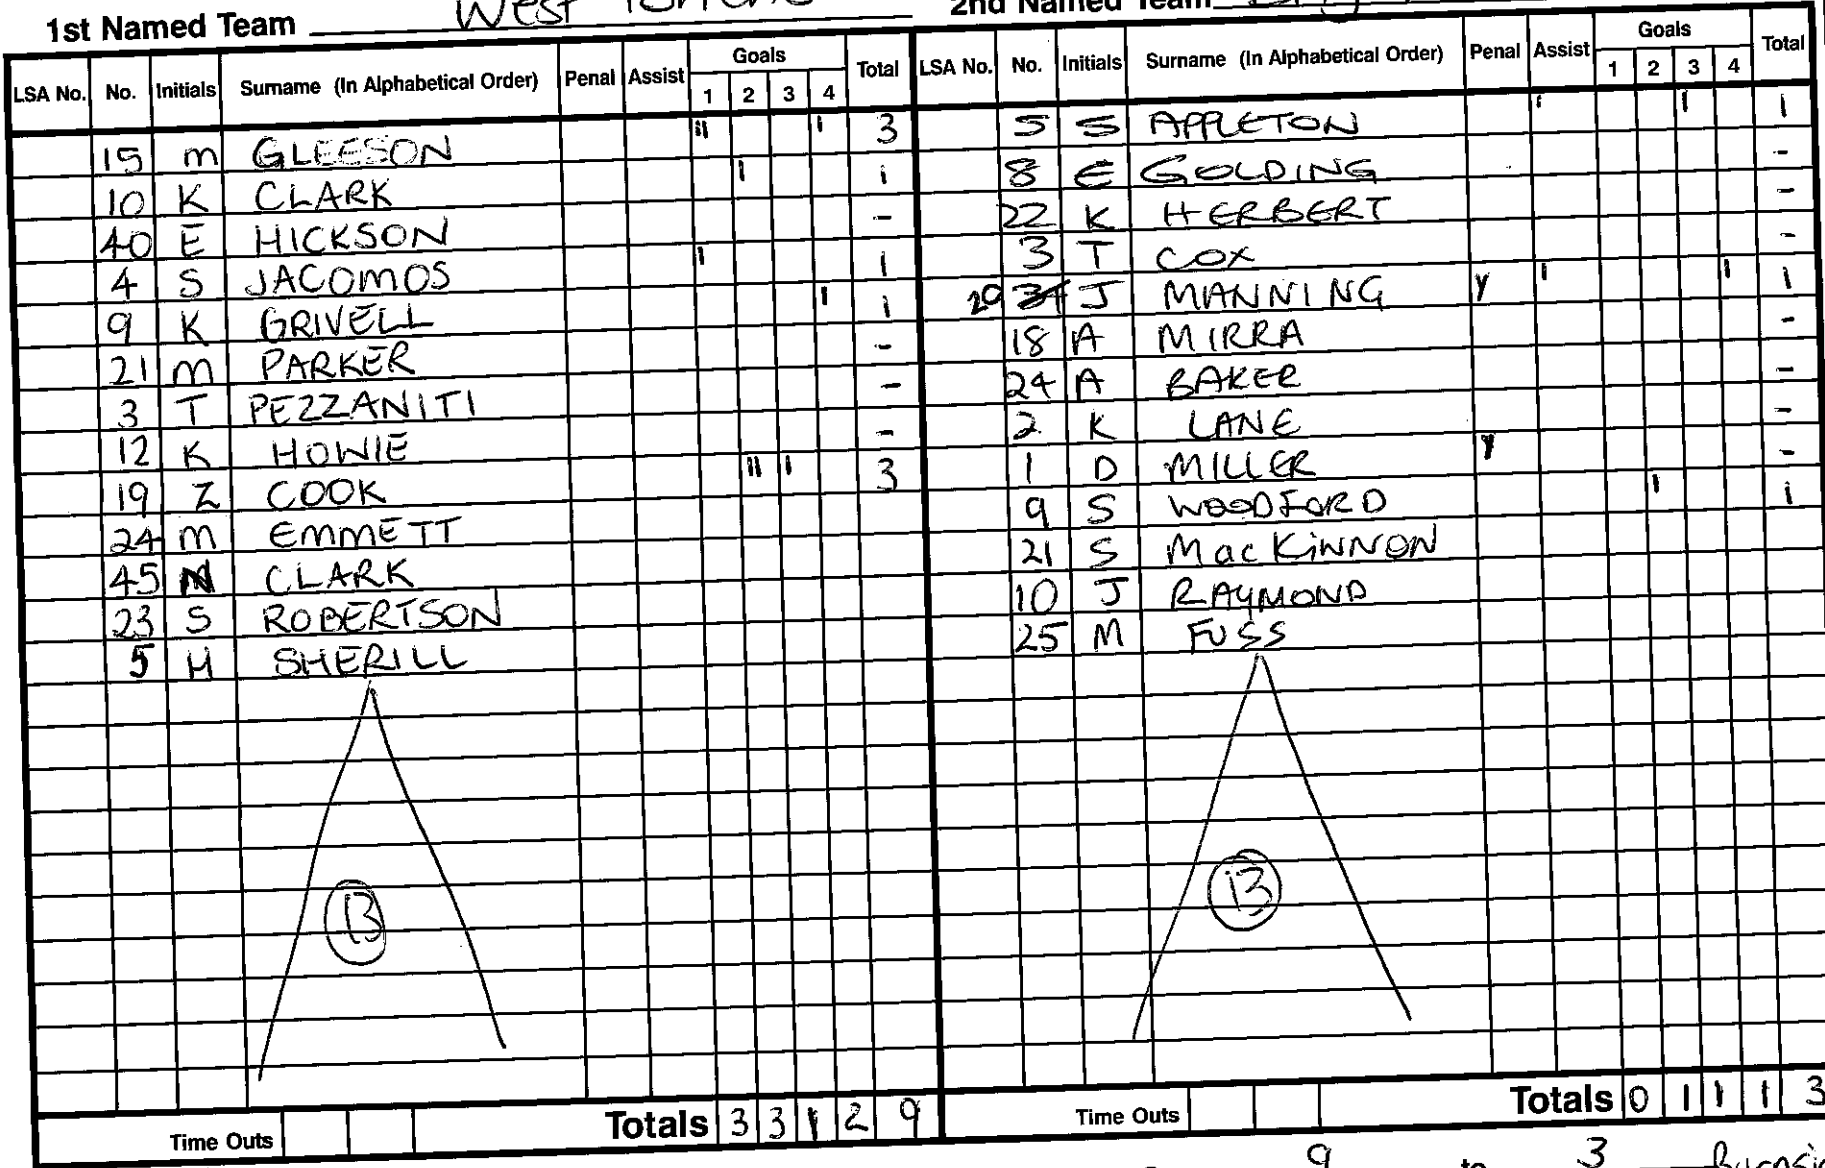 1st Named Team West
2nd Named Team
LSA No. No. Initials Surname (In Alphabetical Order) Penal Assist Goals 1 2 3 4 Total
15 M GLEESON 11 1 3
10 K CLARK 1 1
40 E HICKSON -
4 S JACOMOS 1 1
9 K GRIVELL 1 1
21 M PARKER -
3 T PEZZANITI -
12 K HOWIE -
19 Z COOK 11 1 3
24 M EMMETT
45 N CLARK
23 S ROBERTSON
5 H SHERILL
13
Time Outs Totals 3 3 1 2 9
LSA No. No. Initials Surname (In Alphabetical Order) Penal Assist Goals 1 2 3 4 Total
5 S APPLETON 1 1 1
8 E GOLDING -
22 K HERBERT -
3 T COX -
20 J MANNING Y 1 1 1
18 A MIRRA -
24 A BAKER -
2 K LANE -
1 D MILLER Y -
9 S WOODFORD 1 1
21 S MacKiNNON
10 J RAYMOND
25 M FUSS
13
Time Outs Totals 0 1 1 1 3
9 to 3